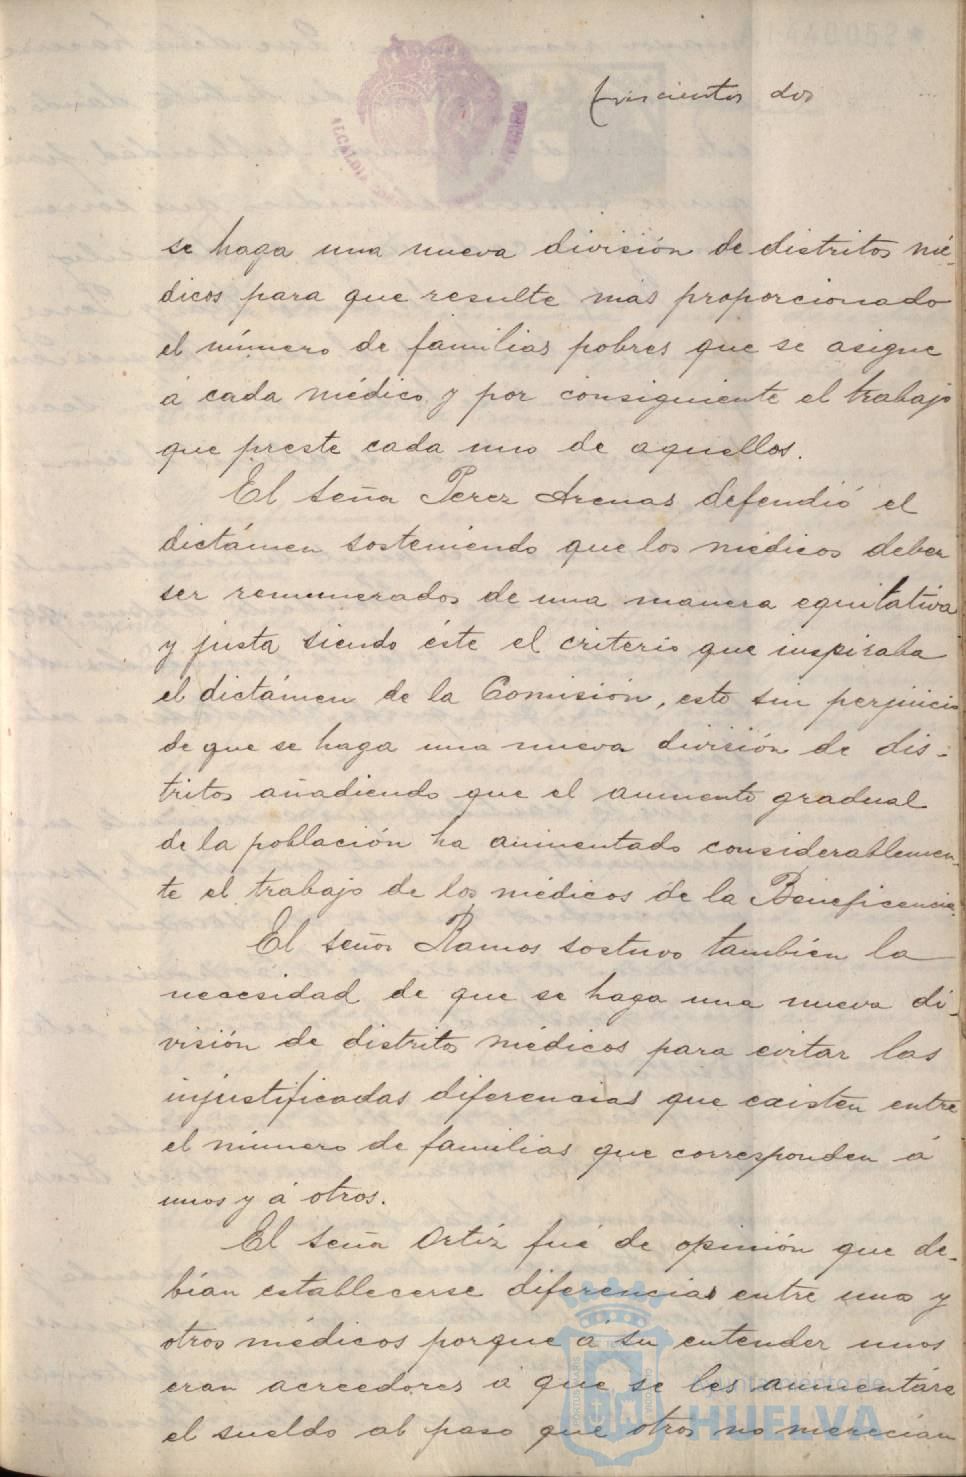 trescientos dos
se haga una nueva división de distritos mé-
dicos para que resulte mas proporcionado
el número de familias pobres que se asigne
á cada médico y por consiguiente el trabajo
que preste cada uno de aquellos.
El señor Perez Arenas defendió el
dictámen sosteniendo que los médicos deben
ser remunerados de una manera equitativa
y justa siendo éste el criterio que inspiraba
el dictámen de la Comisión, esto sin perjuicio
de que se haga una nueva división de dis-
tritos añadiendo que el aumento gradual
de la población ha aumentado considerablemen-
te el trabajo de los médicos de la Beneficencia.
El señor Ramos sostuvo también la
necesidad de que se haga una nueva di-
visión de distritos médicos para evitar las
injustificadas diferencias que existen entre
el número de familias que corresponden á
unos y á otros.
El señor Ortiz fué de opinión que de-
bían establecerse diferencias entre unos y
otros médicos porque á su entender unos
eran acreedores á que se les aumentára
el sueldo al paso que otros no merecian
Ayuntamiento de
HUELVA